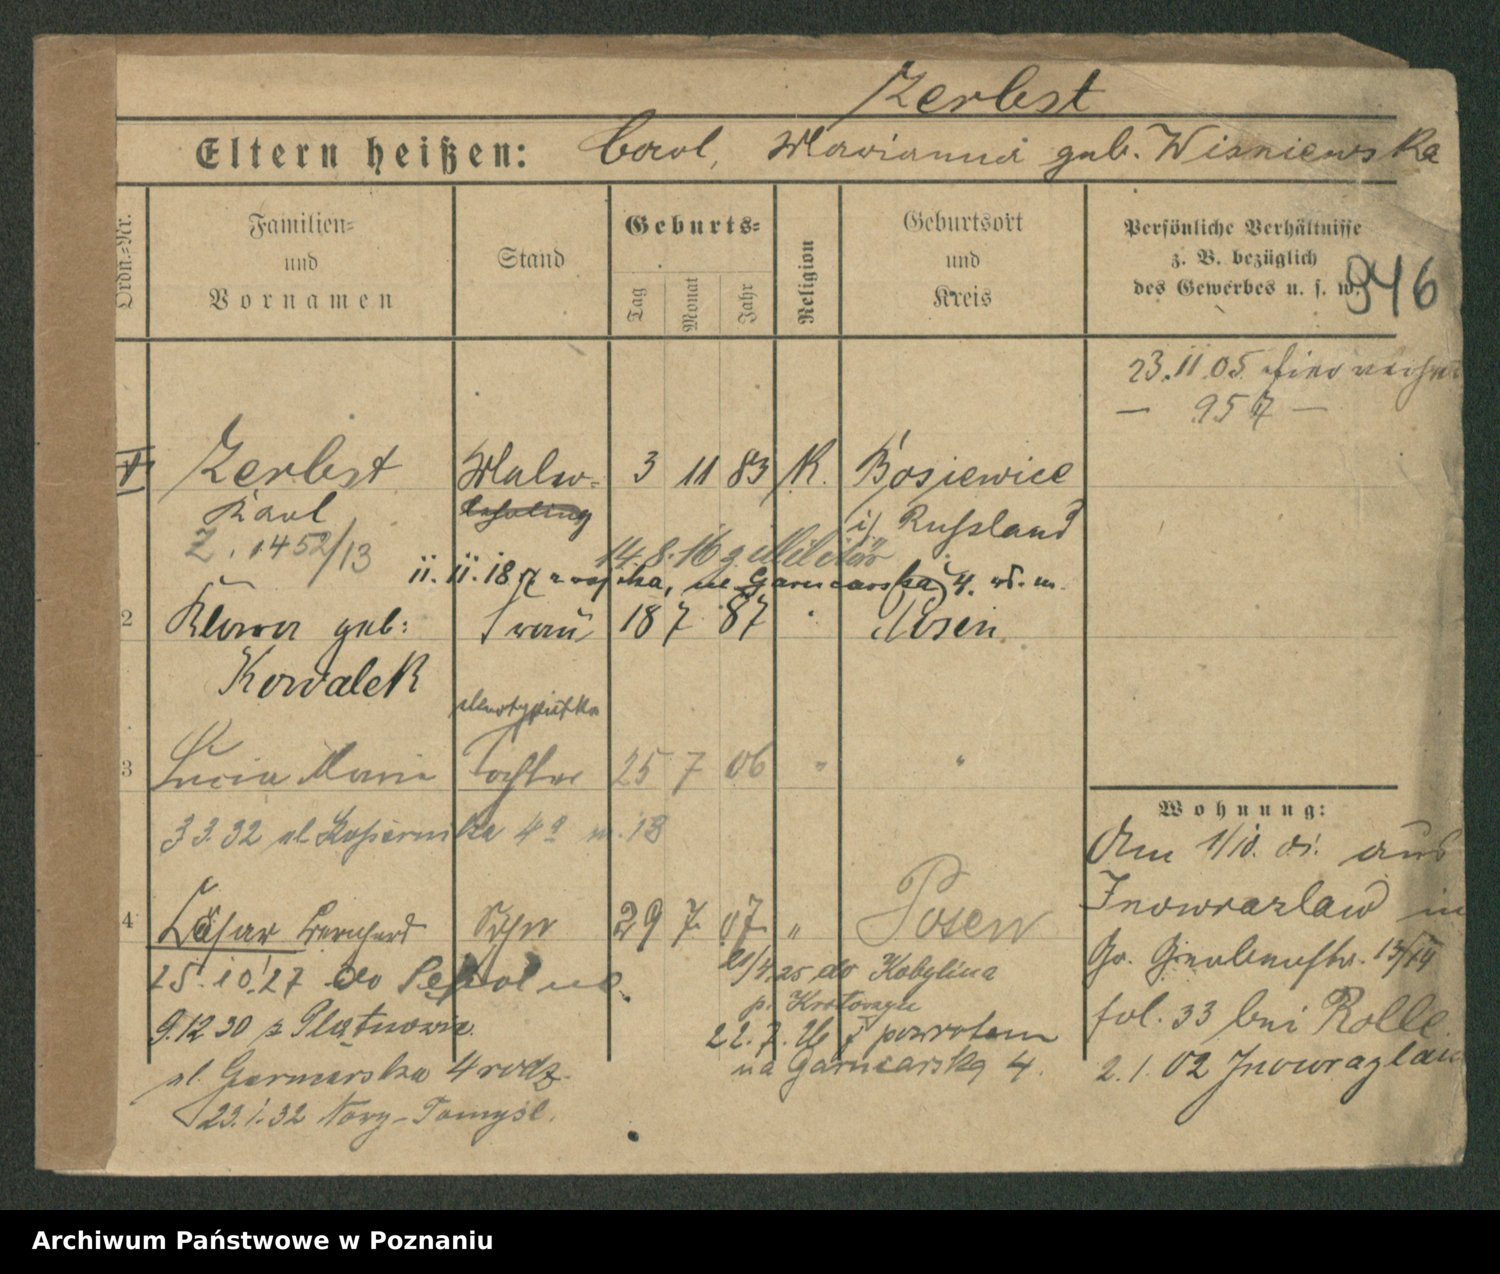 Zerbst
Eltern heißen: Carl, Marianna geb. Wisniewska
Ordn.-Nr.
Familien- und Vornamen
Stand
Geburts-
Tag
Monat
Jahr
Religion
Geburtsort und Kreis
Persönliche Verhältnisse
z. B. bezüglich
des Gewerbes u. s. w.
946
23.11.05
— 957 —
1 Zerbst Maler- 3 11 83 K. Bosiewice
Karl lehrling i/ Russland
Z. 1452/13
14.8.16 z. Militär
11.11.18 z wojska, ul Garncarska 4.
2 Klara geb: Frau 18 7 87 " Posen
Kowalek
stenotypistka
3 Lucia Maria Tochter 25 7 06 " "
3 3.32 ul. 4a m. 13
4 Cäsar Bernhard Sohn 29 7. 07. " Posen
25.10.27 do
do Kobylina
p. Krotoszyn
9.12 30 z
22.7.26 z powrotem
na Garncarską 4.
ul. Garncarska 4 rodz.
23.1.32 Nowy-Tomyśl.
Wohnung:
Am 1/10. 01. aus
Inowrazlaw in
Gr. Gerberstr. 13/14
fol. 33 bei Rolle.
2.1.02 Inowrazlaw
Archiwum Państwowe w Poznaniu